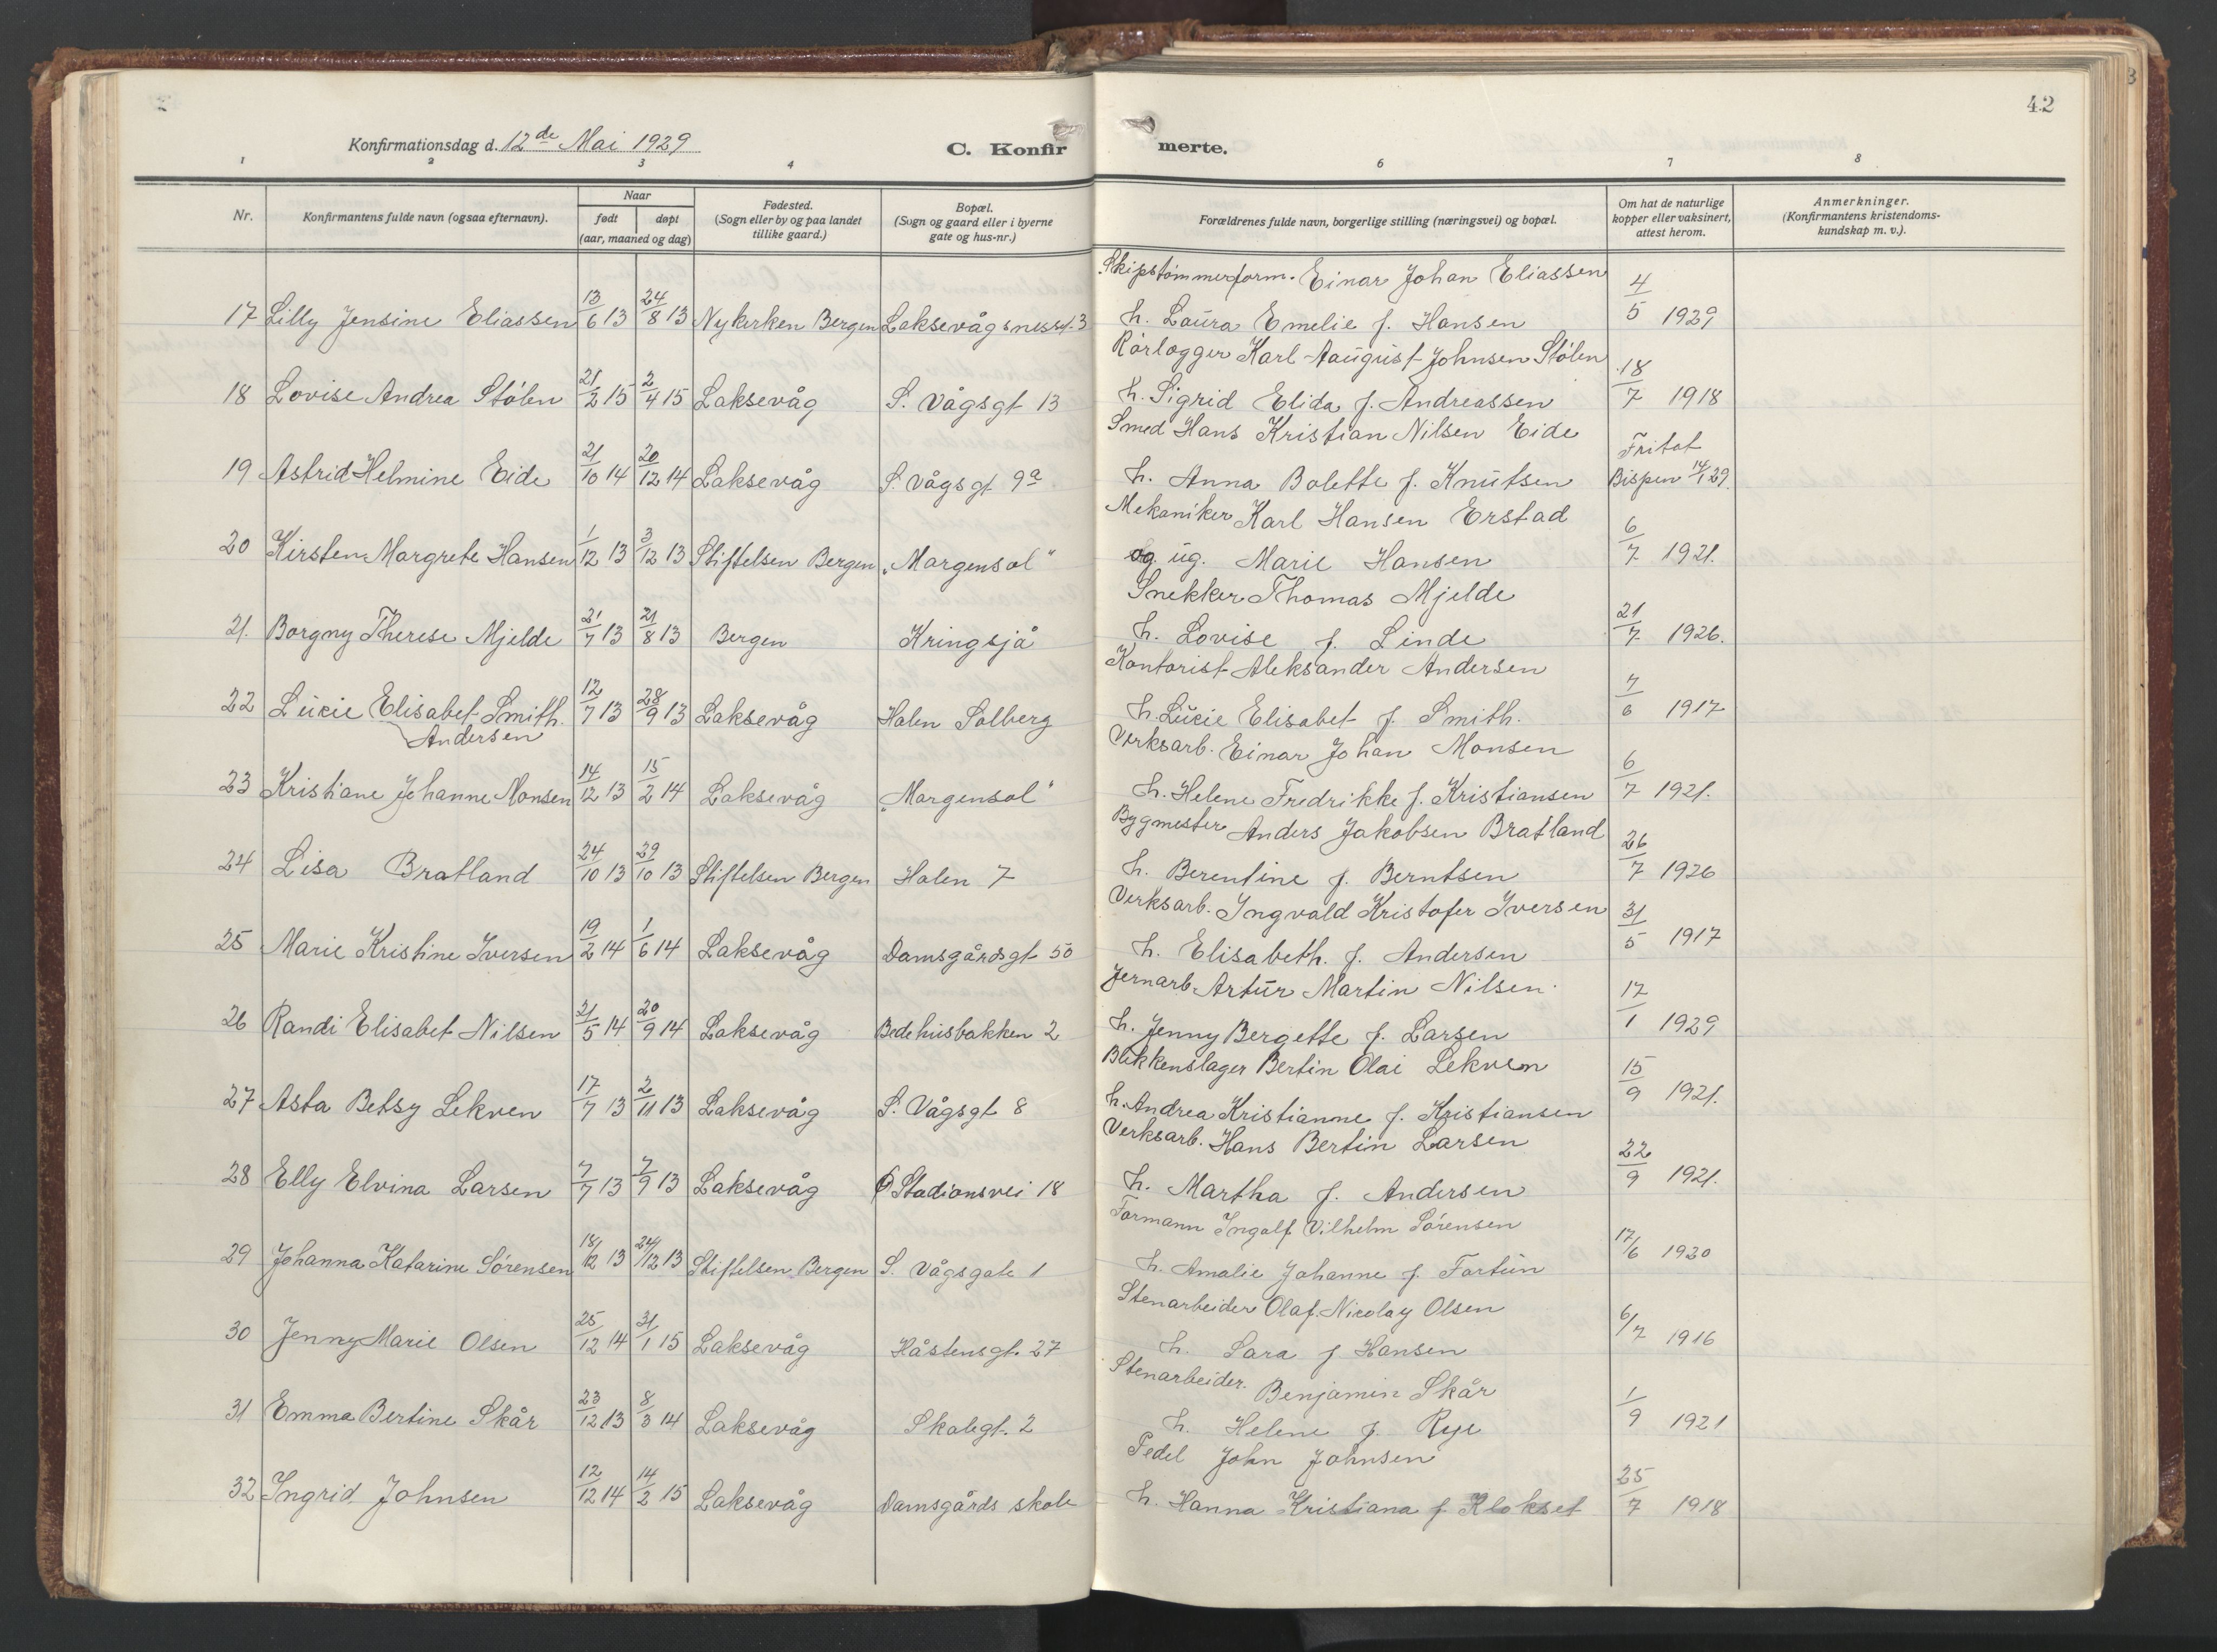 42
Konfirmationsdag d. 12de Mai 1929
C. Konfirmerte.
1 2 3 4 6 7 8
Nr. Konfirmantens fulde navn (ogsaa efternavn). Naar født døpt (aar, maaned og dag) Fødested. (Sogn eller by og paa landet tillike gaard.) Bopæl. (Sogn og gaard eller i byerne gate og hus-nr.) Forældrenes fulde navn, borgerlige stilling (næringsvei) og bopæl. Om hat de naturlige kopper eller vaksinert, attest herom. Anmerkninger. (Konfirmantens kristendomskundskap m. v.).
Skipstømmerform. Einar Johan Eliassen
17 Lilly Jensine Eliassen 13/6 13 24/8 13 Nykirken Bergen Laksevågsnesset 3 h. Laura Emelie f. Hansen 4/5 1929
Rørlægger Karl Aaugust Johnsen Stølen
18 Lovise Andrea Stølen 21/2 15 2/4 15 Laksevåg S. Vågsgt 13 h. Sigrid Elida f. Andreassen 18/7 1918
Smed Hans Kristian Nilsen Eide Fritat
19 Astrid Helmine Eide 21/10 14 20/12 14 Laksevåg S. Vågsgt 9a h. Anna Bolette f. Knutsen Bispen 14/1 29.
Mekaniker Karl Hansen Erstad
20 Kirsten Margrete Hansen 1/12 13 3/12 13 Stiftelsen Bergen „Morgensol" og ug. Marie Hansen 6/7 1921.
Snekker Thomas Mjelde
21. Borgny Therese Mjelde 21/7 13 21/8 13 Bergen Kringsjå h. Lovise f. Linde 21/7 1926.
Kontorist Aleksander Andersen
22 Lucie Elisabet Smith. 12/7 13 28/9 13 Laksevåg Holen Solberg h. Lucie Elisabet f. Smith. 7/6 1917
Andersen
Verksarb. Einar Johan Monsen
23 Kristiane Johanne Monsen 14/12 13 15/2 14 Laksevåg „Morgensol" h. Helene Fredrikke f. Kristiansen 6/7 1921.
Bygmester Anders Jakobsen Bratland
24 Lisa Bratland 24/10 13 29/10 13 Stiftelsen Bergen Holen 7 h. Berentine f. Berntsen 26/7 1926
Verksarb. Ingvald Kristofer Iversen
25 Marie Kristine Iversen 19/2 14 1/6 14 Laksevåg Damsgårdsgt 50 h. Elisabeth. f. Andersen 31/5 1917
Jernarb. Artur Martin Nilsen.
26 Randi Elisabet Nilsen 21/5 14 20/9 14 Laksevåg Bedehusbakken 2 h. Jenny Bergette f. Larsen 17/1 1929
Blikkenslager Bertin Olai Lekven
27 Asta Betsy Lekven 17/7 13 2/11 13 Laksevåg S. Vågsgt 8 h. Andrea Kristianne f. Kristiansen 15/9 1921.
Verksarb. Hans Bertin Larsen
28 Elly Elvina Larsen 7/7 13 7/9 13 Laksevåg Stadionsvei 18 h. Martha f. Andersen 22/9 1921.
Formann Ingolf Vilhelm Sørensen
29 Johanna Katarine Sørensen 18/12 13 24/12 13 Stiftelsen Bergen S. Vågsgate 1 h. Amalie Johanne f. Fortun 17/6 1920
Stenarbeider Olaf Nicolay Olsen
30 Jenny Marie Olsen 25/12 14 31/1 15 Laksevåg Håstensgt. 27 h. Sara f Hansen 6/7 1916
Stenarbeider. Benjamin Skår
31 Emma Bertine Skår 23/12 13 8/3 14 Laksevåg Skolegt. 2 h. Helene f. Rye 1/9 1921
Pedel John Johnsen
32 Ingrid Johnsen 12/12 14 14/2 15 Laksevåg Damsgårds skole h. Hanna Kristiana f. Klokset 25/7 1918